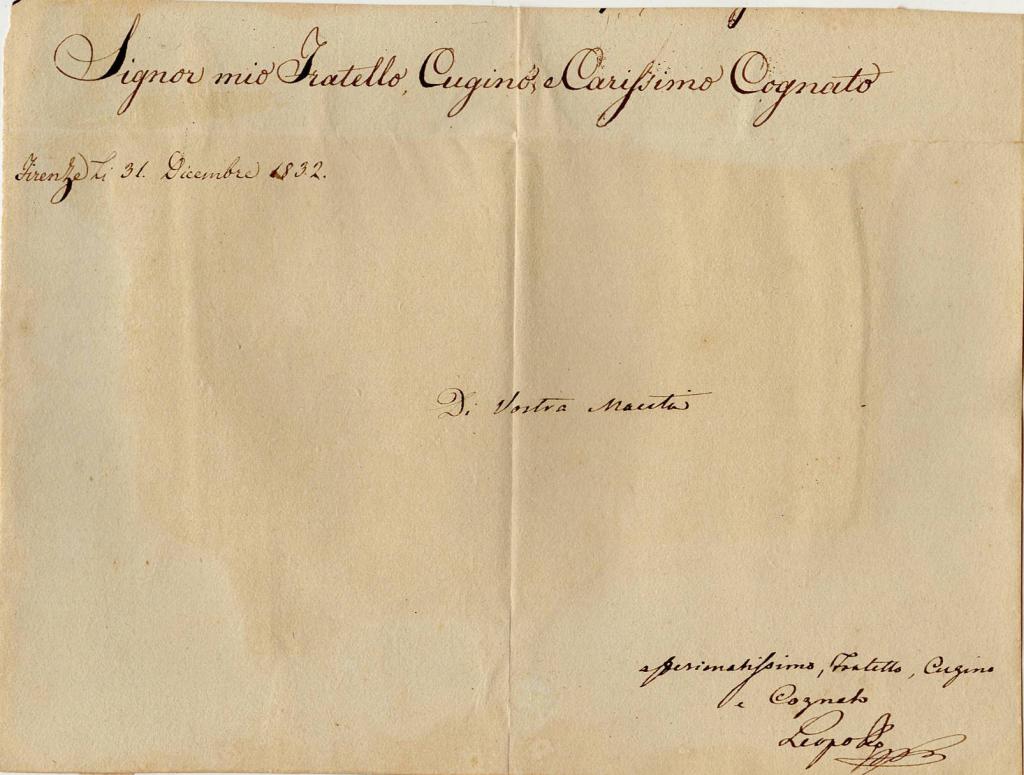 Signor mio Fratello, Cugino, e Carissimo Cognato
Firenze li 31. Dicembre 1832.
Di Vostra Maestà
affezionatissimo, Fratello, Cugino
e Cognato
Leopoldo